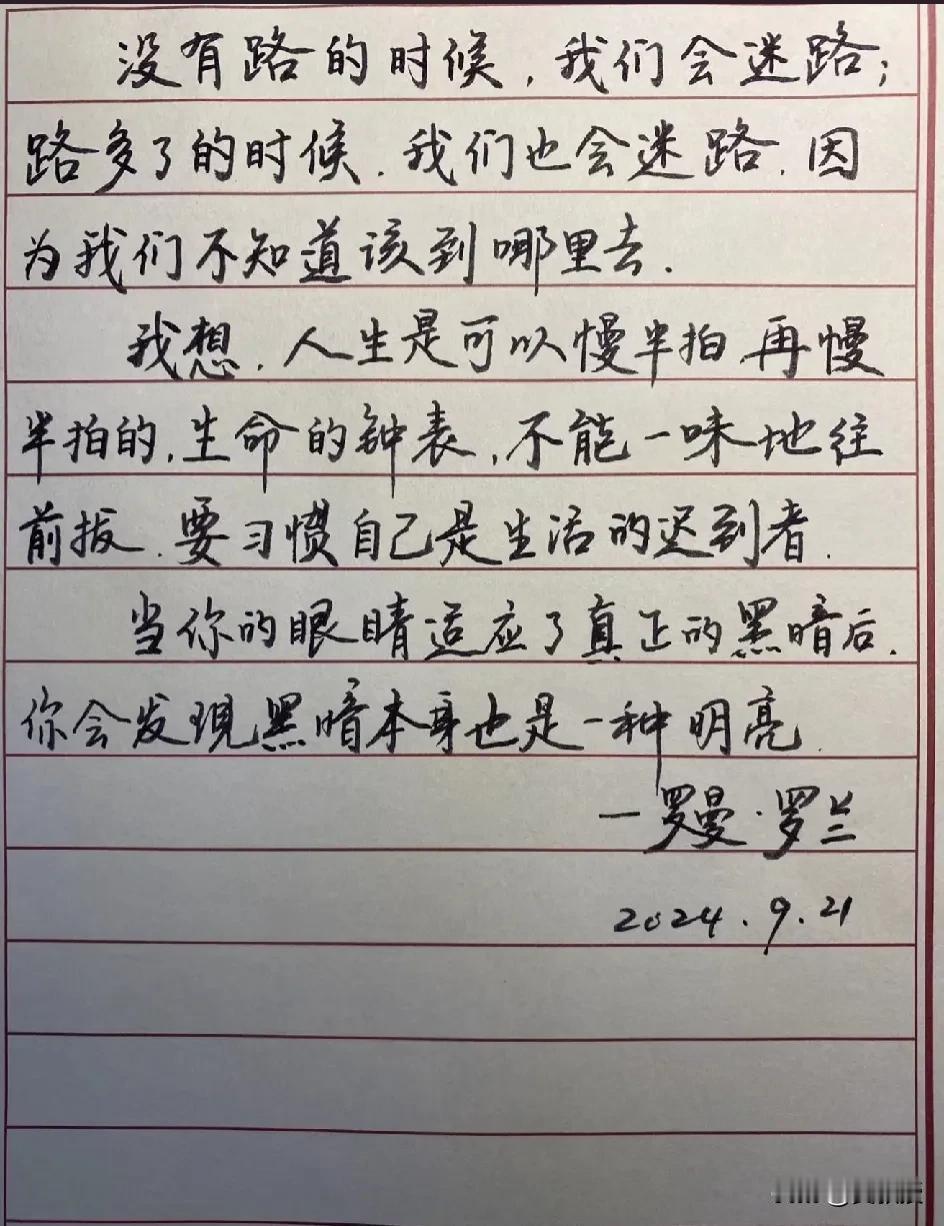 没有路的时候，我们会迷路；
路多了的时候，我们也会迷路，因
为我们不知道该到哪里去．
我想，人生是可以慢半拍，再慢
半拍的，生命的钟表，不能一味地往
前拨，要习惯自己是生活的迟到者．
当你的眼睛适应了真正的黑暗后，
你会发现黑暗本身也是一种明亮．
—罗曼·罗兰
2024.9.21